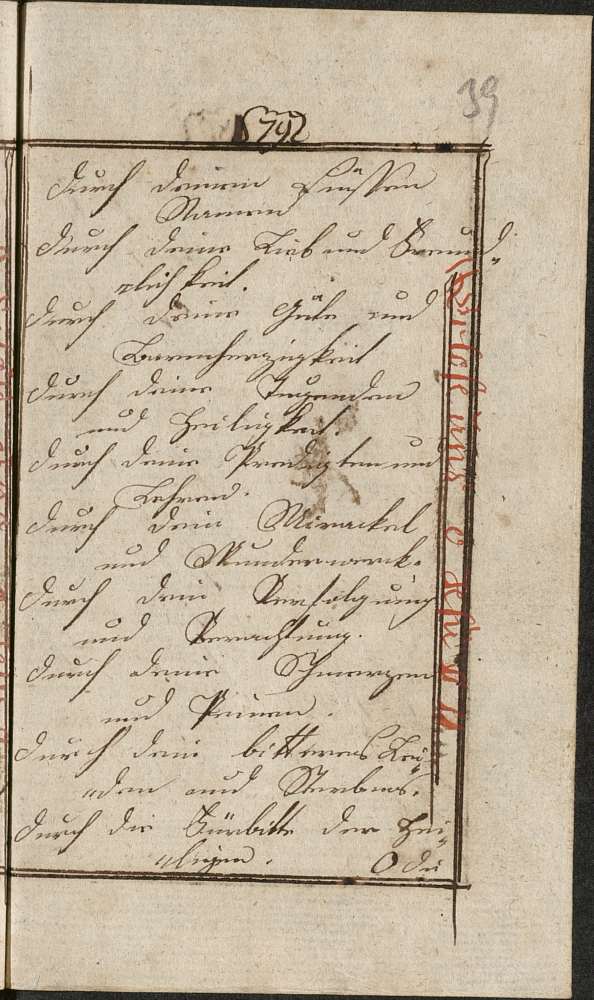 39
1792
durch deinen süssen
Namen
durch deine Lieb und Freund„
„lichkeit.
durch deine Güte und
Barmherzigkeit
durch deine Tugenden
und Heiligkeit.
durch deine Predigten und
Lehren.
durch dein Mirackel
und Wunderwerck.
durch dein Verfolgung
und Verachtung.
durch deine Schmerzen
und Peinen.
durch dein bitteres Lei„
„den und Sterbens.
durch die Fürbitte der Hei„
„ligen. O du
uns o